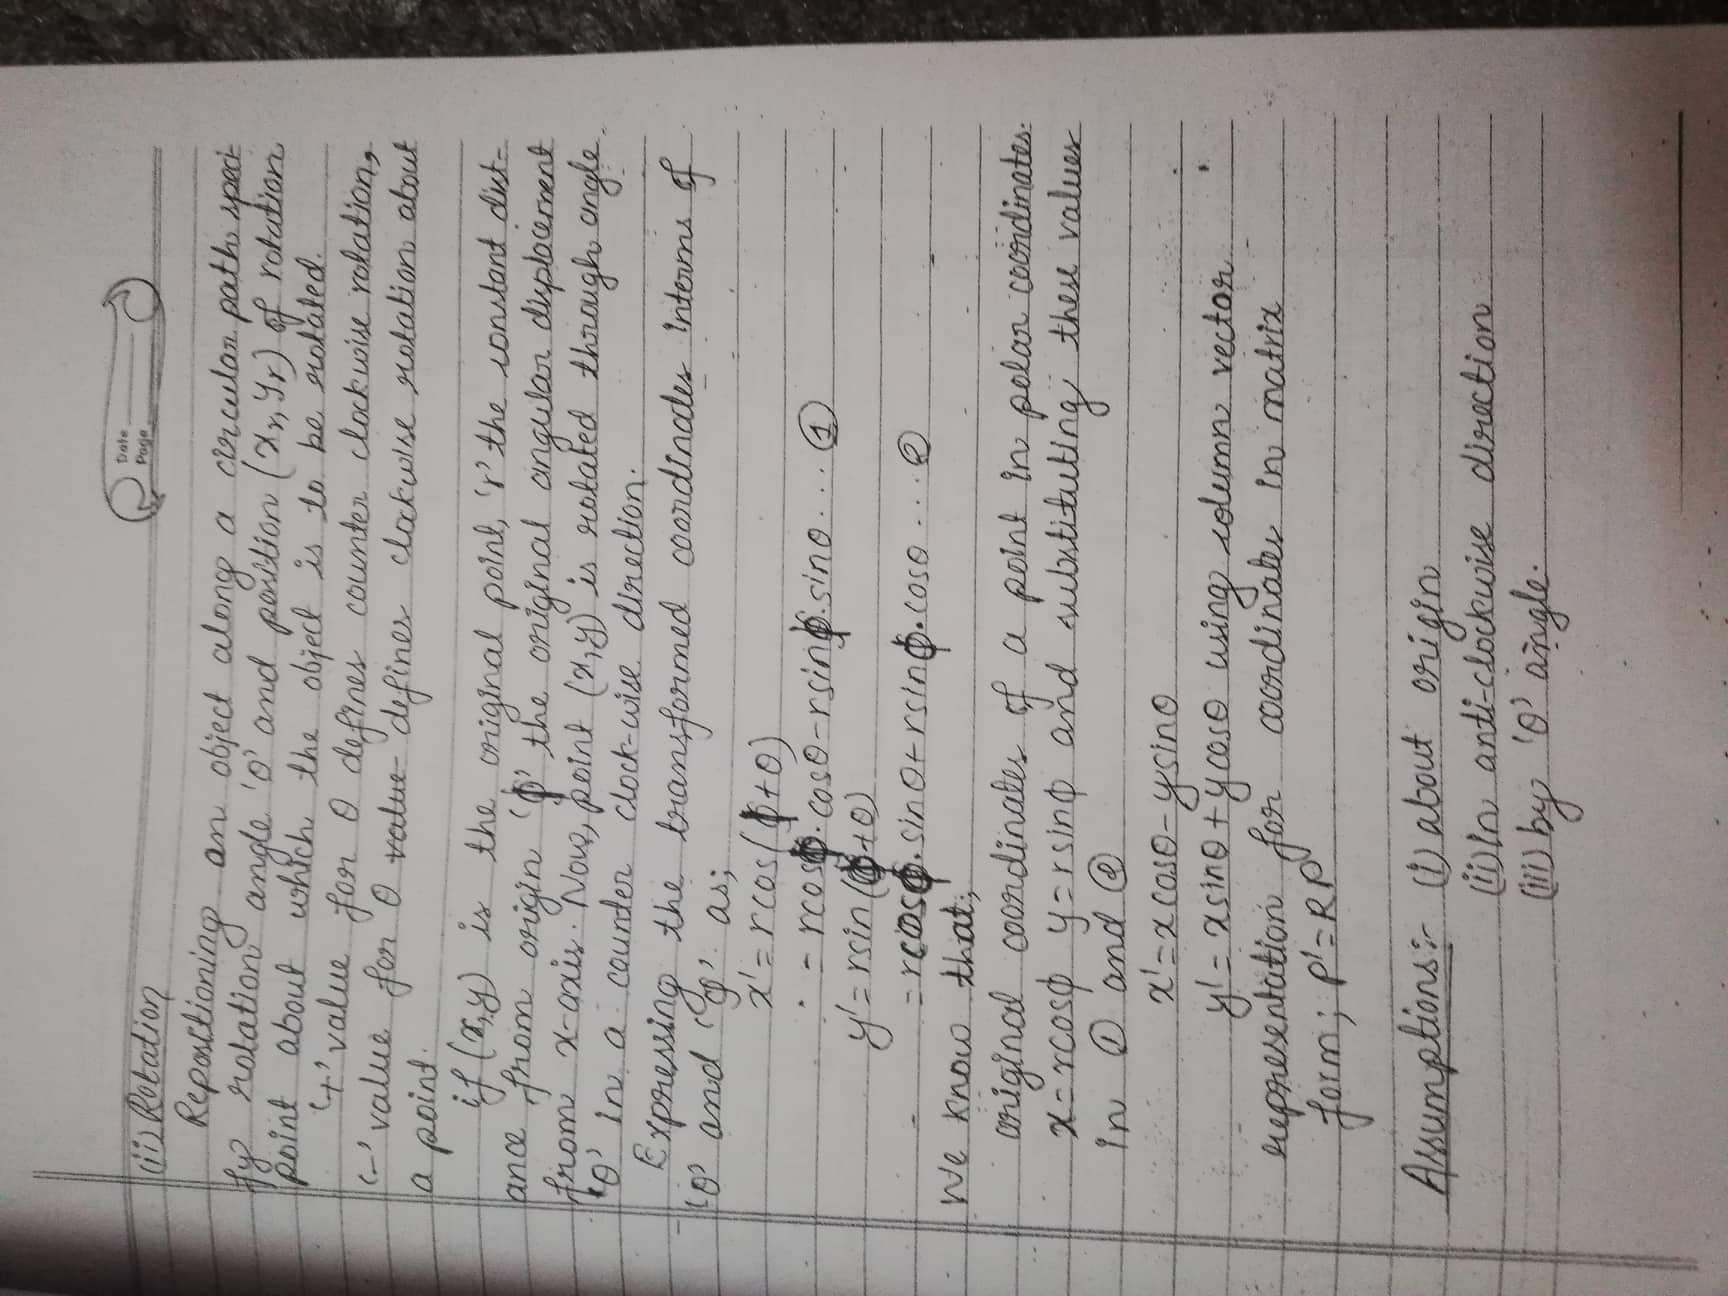 Date
Page
(ii) Rotation
Repositioning an object along a circular path speci-
fy rotation angle 'θ' and position (xr, yr) of rotation
point about which the object is to be rotated.
'+' value for θ defines counter clockwise rotation,
'-' value for θ value defines clockwise rotation about
a point.
if (x,y) is the original point, 'r' the constant dist-
ance from origin 'ϕ' the original angular displacement
from x-axis. Now, point (x,y) is rotated through angle
'θ' in a counter clock-wise direction.
Expressing the transformed coordinates interms of
'θ' and 'φ' as;
x' = rcos(ϕ+θ)
= rcosϕ.cosθ-rsinϕ.sinθ ... ①
y' = rsin(ϕ+θ)
= rcosϕ.sinθ+rsinϕ.cosθ ... ②
We know that;
original coordinates of a point in polar coordinates.
x=rcosϕ y=rsinϕ and substituting these values
in ① and ②
x'=xcosθ-ysinθ
y'= xsinθ+ycosθ using column vector
representation for coordinates in matrix
form; P'=RP
Assumptions:- (i) about origin
(ii) In anti-clockwise direction
(iii) by 'θ' angle.